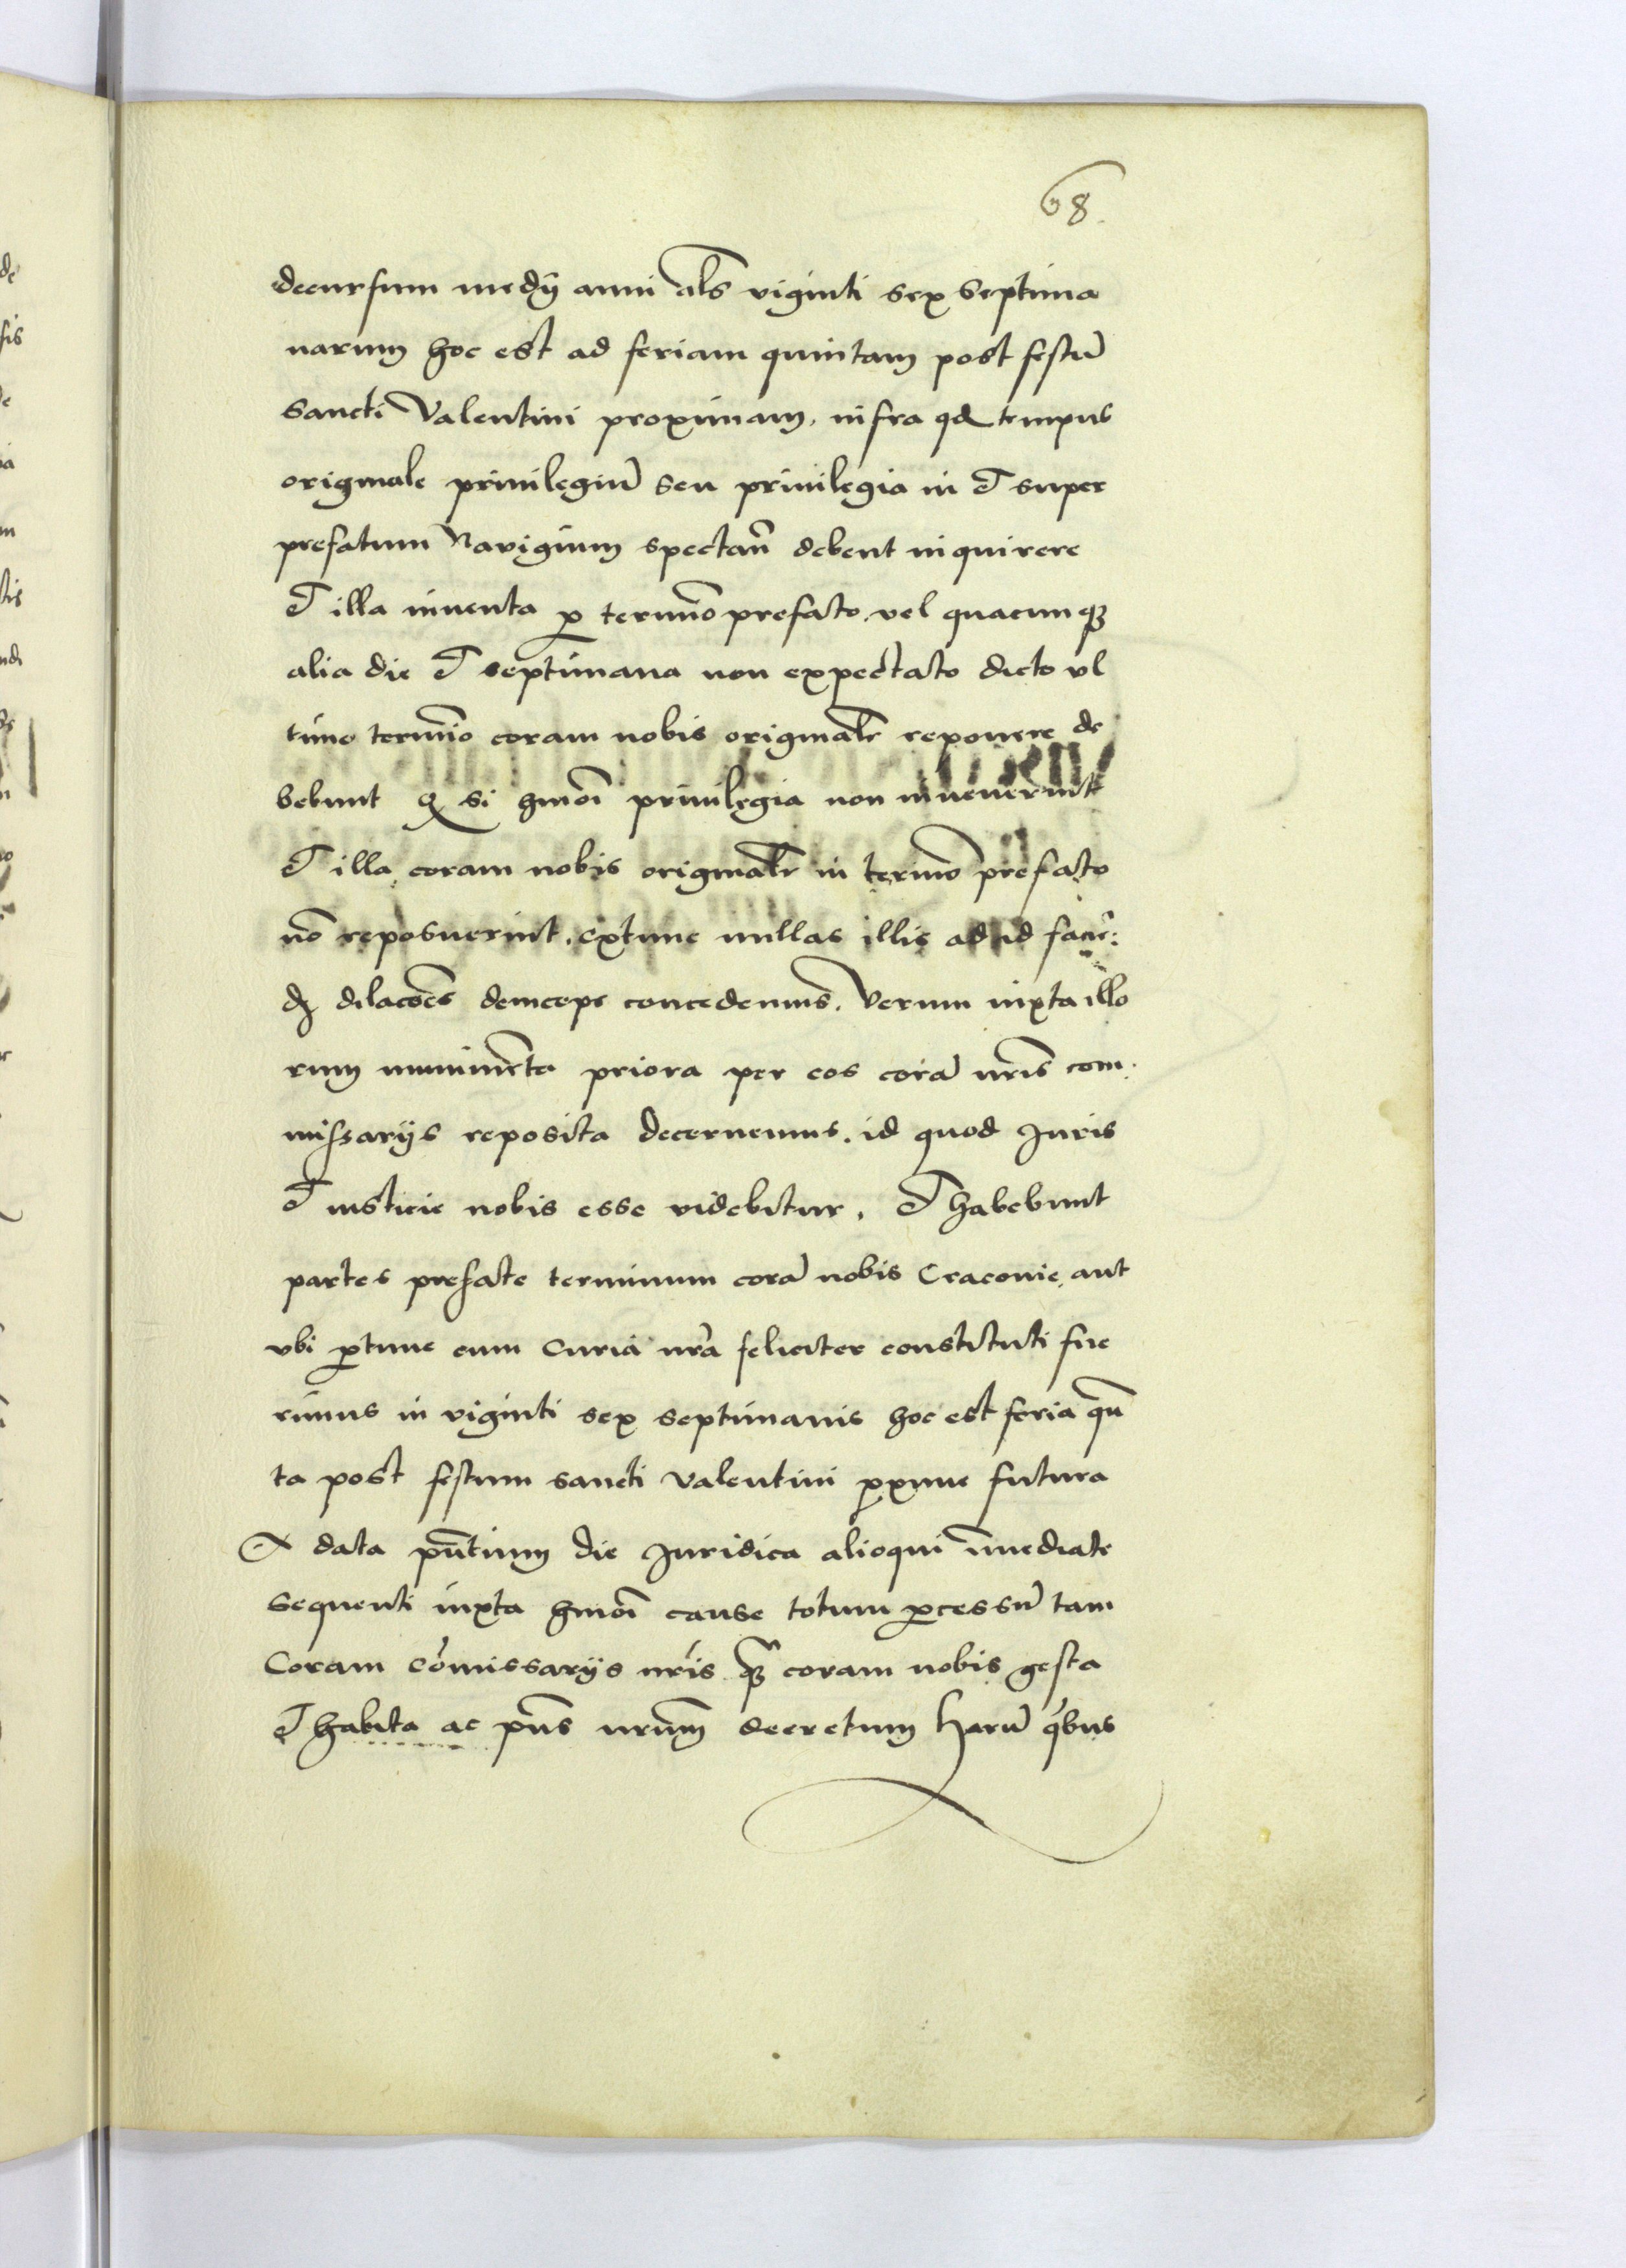 68.
decursum medÿ anni al̄s viginti sex Septima
narum hoc est ad feriam quintam post festū
Sancti Valentini proximam. infra qd tempus
originale priuilegiū seu priuilegia in et super
prefatum Navigium spectan̄ debent inquirere
et illa inuenta ꝓ termīo prefato. vel quacunqꝫ
alia die et septimana non expectato dicto vl
timo termīo coram nobis originalr̄ reponere de
bebunt Qꝫ si hmōi priuilegia non inuenerint
et illa coram nobis originalr̄ in termīo prefato
nō reposuerint. extunc nullas illis ad id facīē:
dꝫ dilacōēs deinceps concedemus. Verum iuxta illo
rum munimēta priora per eos corā nr̄is com.
missarÿs reposita decernemus. id quod Iuris
et iusticie nobis esse videbitur. et habebunt
partes prefate terminum corā nobis Cracouie aut
vbi ꝓtunc cum Curia nr̄a feliciter constituti fue
rimus in viginti sex septimanis hoc est feria quī
ta post festum sancti Valentini ꝓxime futura
A data pn̄tium die Iuridica alioqui īmediate
sequenti iuxta hmōi cause totum ꝓcessū tam
Coram cōmissarÿs nr̄is qꝫ coram nobis gesta
et habita ac pn̄s nrūm decretum harū qͥbus